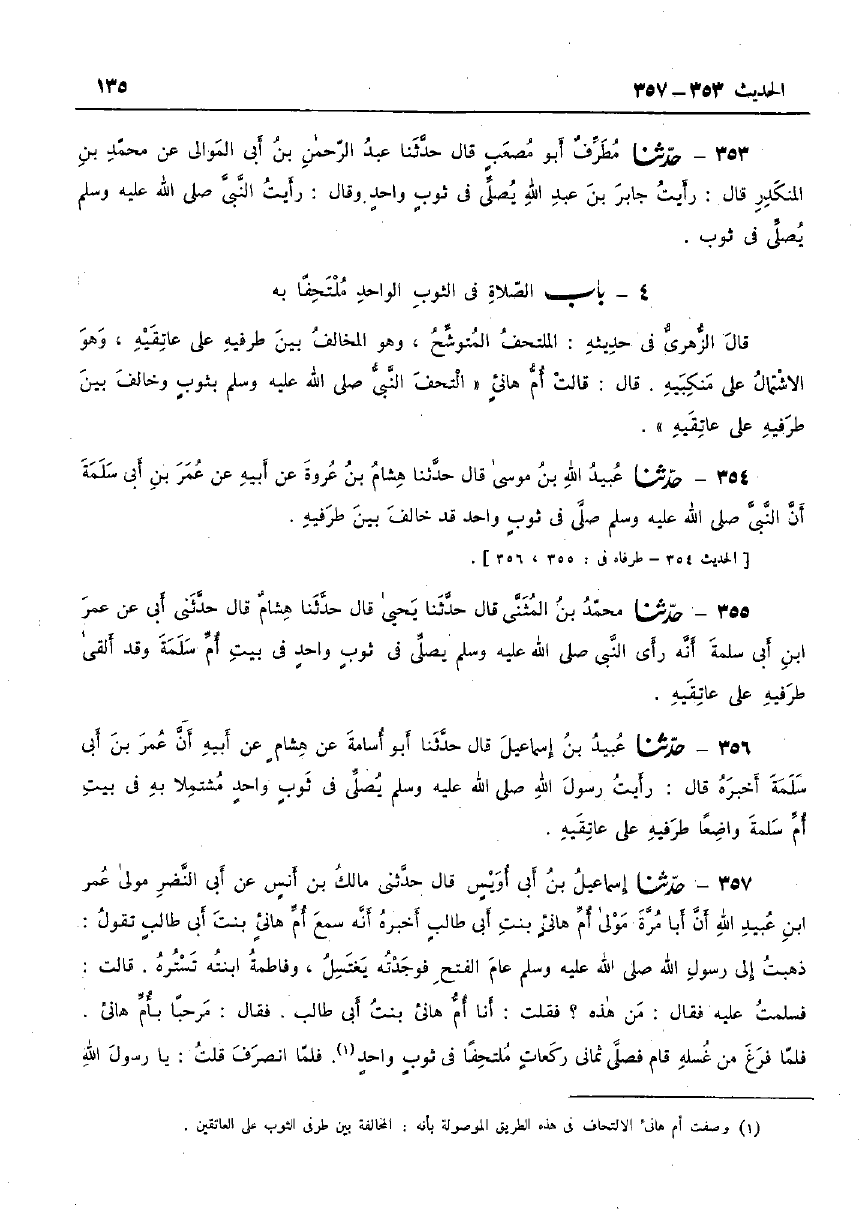 الحديث ٣٥٣ – ٣٥٧ ١٣٥
٣٥٣ – حدّثنا مُطَرِّفٌ أبو مُصعَبٍ قال حدَّثَنا عبدُ الرّحمٰنِ بنُ أبى المَوالى عن محمّدِ بنِ
المنكَدِرِ قال : رأَيتُ جابرَ بنَ عبدِ اللهِ يُصلِّى فى ثوبٍ واحدٍ وقال : رأَيتُ النَّبىَّ صلى الله عليه وسلم
يُصلِّى فى ثوب .
٤ – باب الصّلاةِ فى الثوبِ الواحدِ مُلْتَحِفًا به
قالَ الزُّهرىُّ فى حديثهِ : الملتحفُ المُتوشِّحُ ، وهو المخالفُ بينَ طرفيهِ على عاتِقَيْهِ ، وَهوَ
الاشْتِمالُ على مَنكِبَيهِ . قال : قالتْ أُمُّ هانئ « الْتحفَ النَّبىُّ صلى الله عليه وسلم بثوبٍ وخالفَ بينَ
طرفيهِ على عاتِقَيهِ » .
٣٥٤ – حدّثنا عُبيدُ اللهِ بنُ موسىٰ قال حدَّثنا هِشامُ بنُ عُروةَ عن أبيهِ عن عُمَرَ بنِ أبى سَلَمَةَ
أنَّ النَّبىَّ صلى الله عليه وسلم صلَّى فى ثوبٍ واحد قد خالفَ بينَ طرفيهِ .
[ الحديث ٣٥٤ – طرفاه فى : ٣٥٥ ، ٣٥٦ ] .
٣٥٥ – حدّثنا محمّدُ بنُ المُثنَّى قال حدَّثَنا يَحيىٰ قال حدَّثَنا هِشامٌ قال حدَّثَنى أبى عن عمرَ
ابنِ أبى سلمةَ أنَّه رأى النَّبى صلى الله عليه وسلم يصلِّى فى ثوبٍ واحدٍ فى بيتِ أُمِّ سَلَمَةَ وقد ألقىٰ
طرَفيهِ على عاتِقَيهِ .
٣٥٦ – حدّثنا عُبيدُ بنُ إسماعيلَ قال حدَّثَنا أبو أُسامةَ عن هِشامٍ عن أبيهِ أنَّ عُمرَ بنَ أبى
سَلَمَةَ أخبرَهُ قال : رأيتُ رسولَ اللهِ صلى الله عليه وسلم يُصلِّى فى ثَوبٍ واحدٍ مُشتمِلا بهِ فى بيتِ
أُمِّ سَلمةَ واضِعًا طرَفيهِ على عاتِقَيهِ .
٣٥٧ – حدّثنا إسماعيلُ بنُ أبى أُوَيْسٍ قال حدثنى مالكُ بن أنسٍ عن أبى النَّضرِ مولىٰ عُمر
ابنِ عُبيدِ اللهِ أنَّ أبا مُرَّةَ مَوْلىٰ أُمِّ هانئٍ بنتِ أبى طالبٍ أخبرهُ أنَّه سمعَ أُمَّ هانئٍ بنتَ أبى طالبٍ تقولُ :
ذهبتُ إلى رسولِ الله صلى الله عليه وسلم عامَ الفتحِ فوجَدْتُه يَغتَسِلُ ، وفاطمةُ ابنتُه تَسْتُرهُ . قالت :
فسلمتُ عليه فقال : مَن هٰذه ؟ فقلت : أنا أُمُّ هانئ بنتُ أبى طالب . فقال : مَرحبًا بأُمِّ هانئ .
فلمّا فرَغَ من غُسلهِ قام فصلَّى ثمانى ركَعاتٍ مُلتحِفًا فى ثوبٍ واحدٍ(١). فلمّا انصرَفَ قلتُ : يا رسولَ اللهِ
(١) وصفت أم هانئ الالتحاف فى هذه الطريق الموصولة بأنه : المخالفة بين طرفى الثوب على العاتقين .